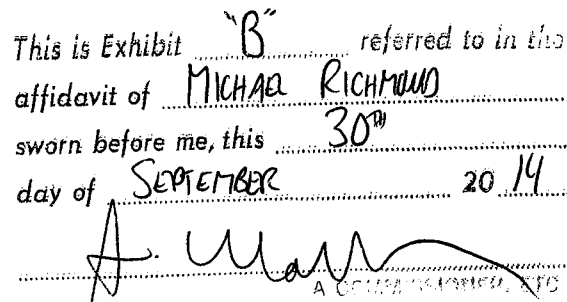 This is Exhibit "B" referred to in the
affidavit of MICHAEL RICHMOND
sworn before me, this 30TH
day of SEPTEMBER 2014
A COMMISSIONER, ETC